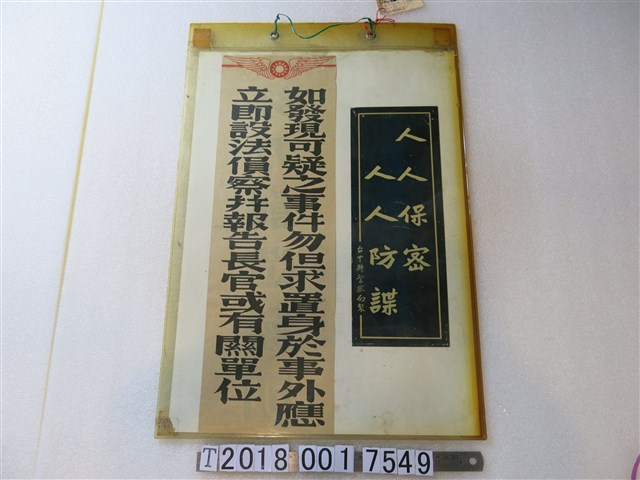 人人保密
人人防諜
台中縣警察局製
如發現可疑之事件勿但求置身於事外應
立即設法偵察幷報告長官或有關單位
T 2018 001 7549